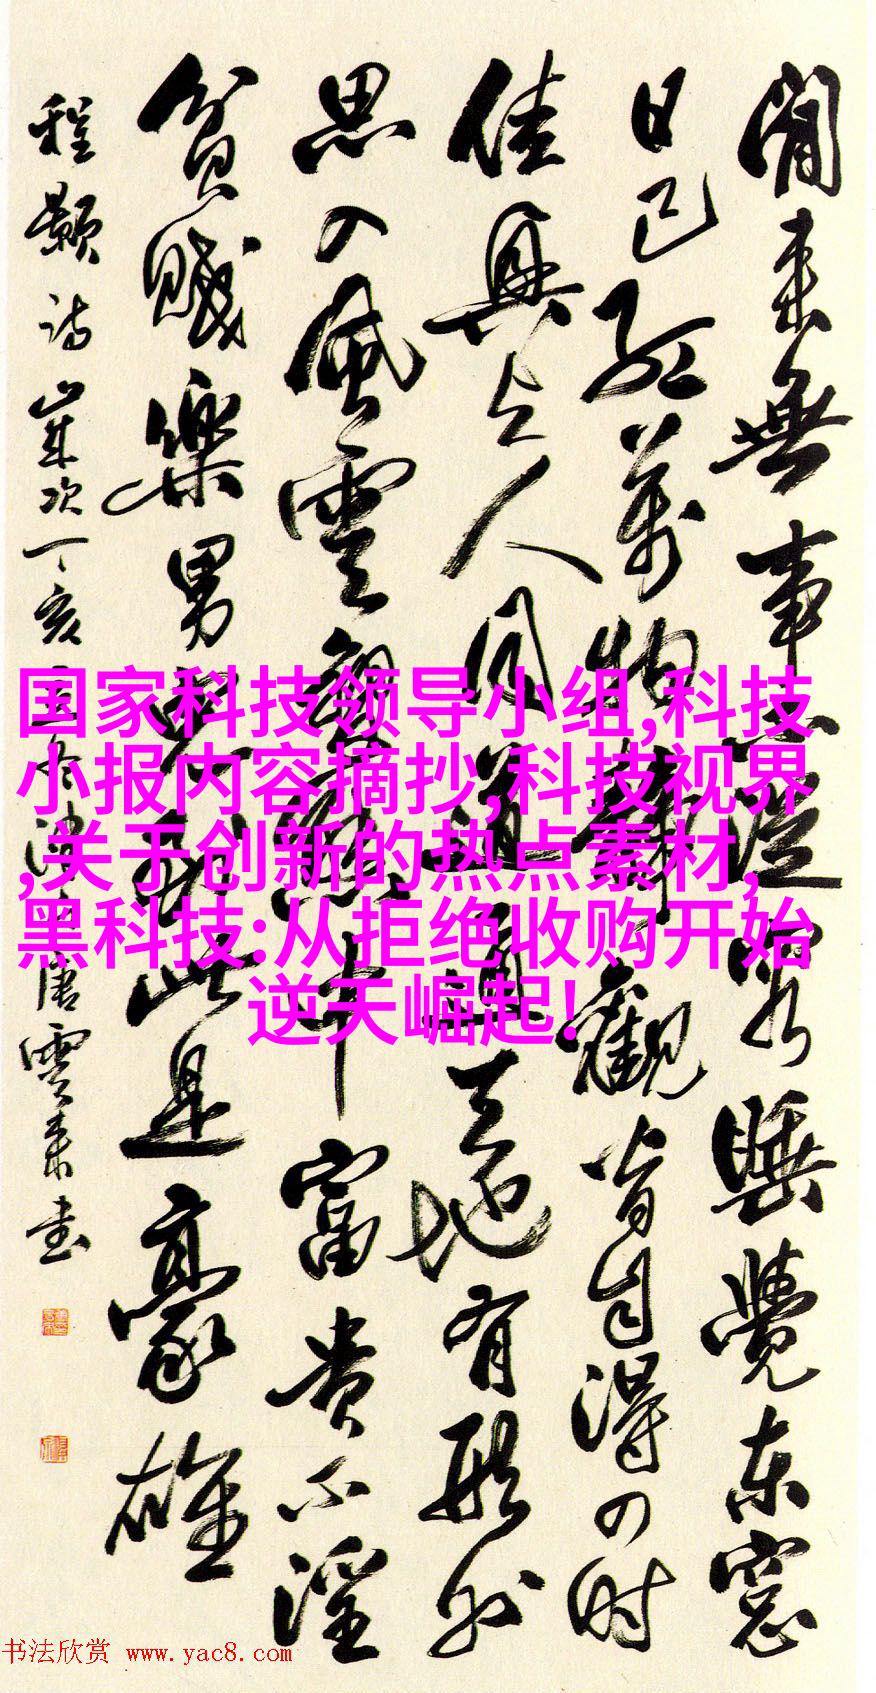 閒来無事不從容睡覺东窗
日已红萬物静觀皆自得四时
佳興与人同道通天地有形外
思入風雲變態中富贵不淫
貧賤樂男兒到此是豪雄
程顥诗歲次丁亥唐雲来书
国家科技领导小组,科技
小报内容摘抄,科技视界
,关于创新的热点素材,
黑科技:从拒绝收购开始
逆天崛起!
书法欣赏 www.yac8.com